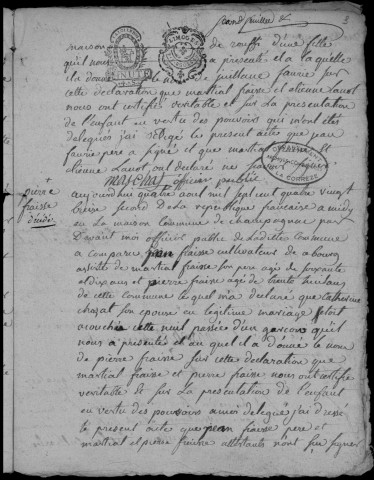 second feuillet 3
maison de rouffy d'une fille
qu'il nous a presenté et a la quelle
il a donné le nom de guillaume faurie sur
cette declaration que martial fraisse et etienne Lavot
nous ont certifié veritable et sur la presentation
de l'enfant en vertu des pouvoirs qui m'ont étés
delegués j'ai rédigé le present acte que jean
faurie pere a signé et que martial fraisse et
etienne Lavot ont déclaré ne savoir signer
officier public
pierre fraisse
aujourd'hui quatre aout mil sept cent quatre vingt
treize second de la republique francaise a midi
en la maison commune de champagnac par
Devant moi officier public de ladite commune
a comparu jean fraisse cultivateur de a bourg
assisté de martial fraisse son pere agé de soixante
et dix ans et pierre fraisse agé de trente neuf ans
de cette commune le quel m'a declaré que catherine
chezat son epouse en legitime mariage s'etoit
acouchée cette nuit passée d'un garçon qu'il
nous a presenté et au quel il a donné le nom
de pierre fraisse sur cette declaration que
martial fraisse et pierre fraisse nous ont certifié
veritable et sur la presentation de l'enfant
en vertu des pouvoirs a moi delegués j'ai dressé
le present acte que jean fraisse pere et
martial et pierre fraisse attestants n'ont su signer